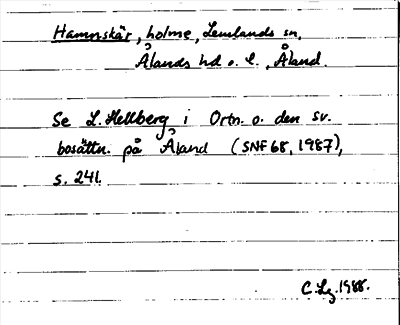 Hamnskär, holme, Lemlands sn,
Ålands hd o. l., Åland.
Se L. Hellberg i Ortn. o. den sv.
bosättn. på Åland (SNF 68, 1987),
s. 241.
1988.